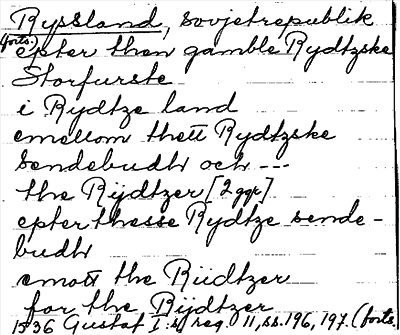 Ryssland, sovjetrepublik
(forts.) epter then gamble Rydtzske
Storfurste
i Rydtze land
emellom thett Rydtzske
Sendebudh och ---
the Rijdtzer [2 ggr]
epter thesse Rydtze sende-
budh
emott the Rüdtzer
for the Rijdtzer
1536 Gustaf I:s reg. 11, ss. 196, 197. (forts.